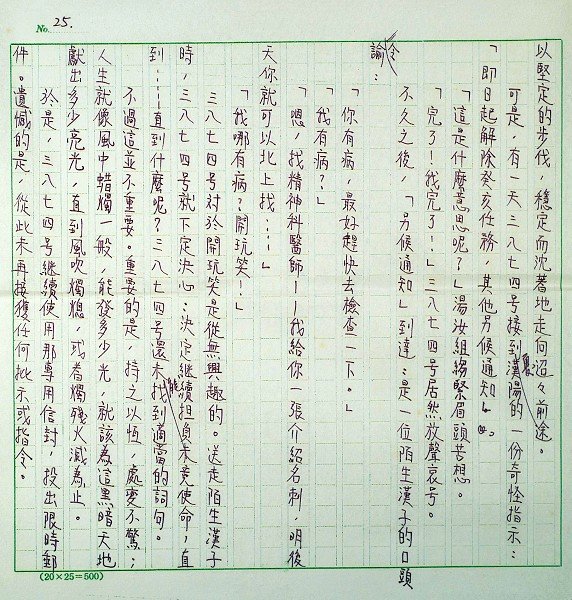 No. 25.
以堅定的步伐，穩定而沈著地走向迢々前途。
可是，有一天三八七四号接到漢湯的一份奇怪指示：
「即日起解除癸亥任務，其他另候通知」。
「這是什麼意思呢？」湯汝組縐緊眉頭苦想。
「完了！我完了！」三八七四号居然放聲哀号。
不久之後，「另候通知」到達：是一位陌生漢子的口頭
令諭：
「你有病，最好趕快去檢查一下。」
「我有病？」
「嗯，找精神科醫師——我給你一張介紹名刺，明後
天你就可以北上找……」
「我哪有病？開玩笑！」
三八七四号對於開玩笑是從無興趣的。送走陌生漢子
時，三八七四号就下定決心：決定繼續担負未竟使命，直
到……直到什麼呢？三八七四号還未能找到適當的詞句。
不過這並不重要。重要的是，持之以恆，處變不驚；
人生就像風中蜡燭一般，能發多少光，就該為這黑暗天地
獻出多少亮光，直到風吹燭熄，或者燭殘火滅為止。
於是，三八七四号繼續使用那專用信封，投出限時郵
件。遺憾的是，從此未再接獲任何批示或指令。
(20×25=500)